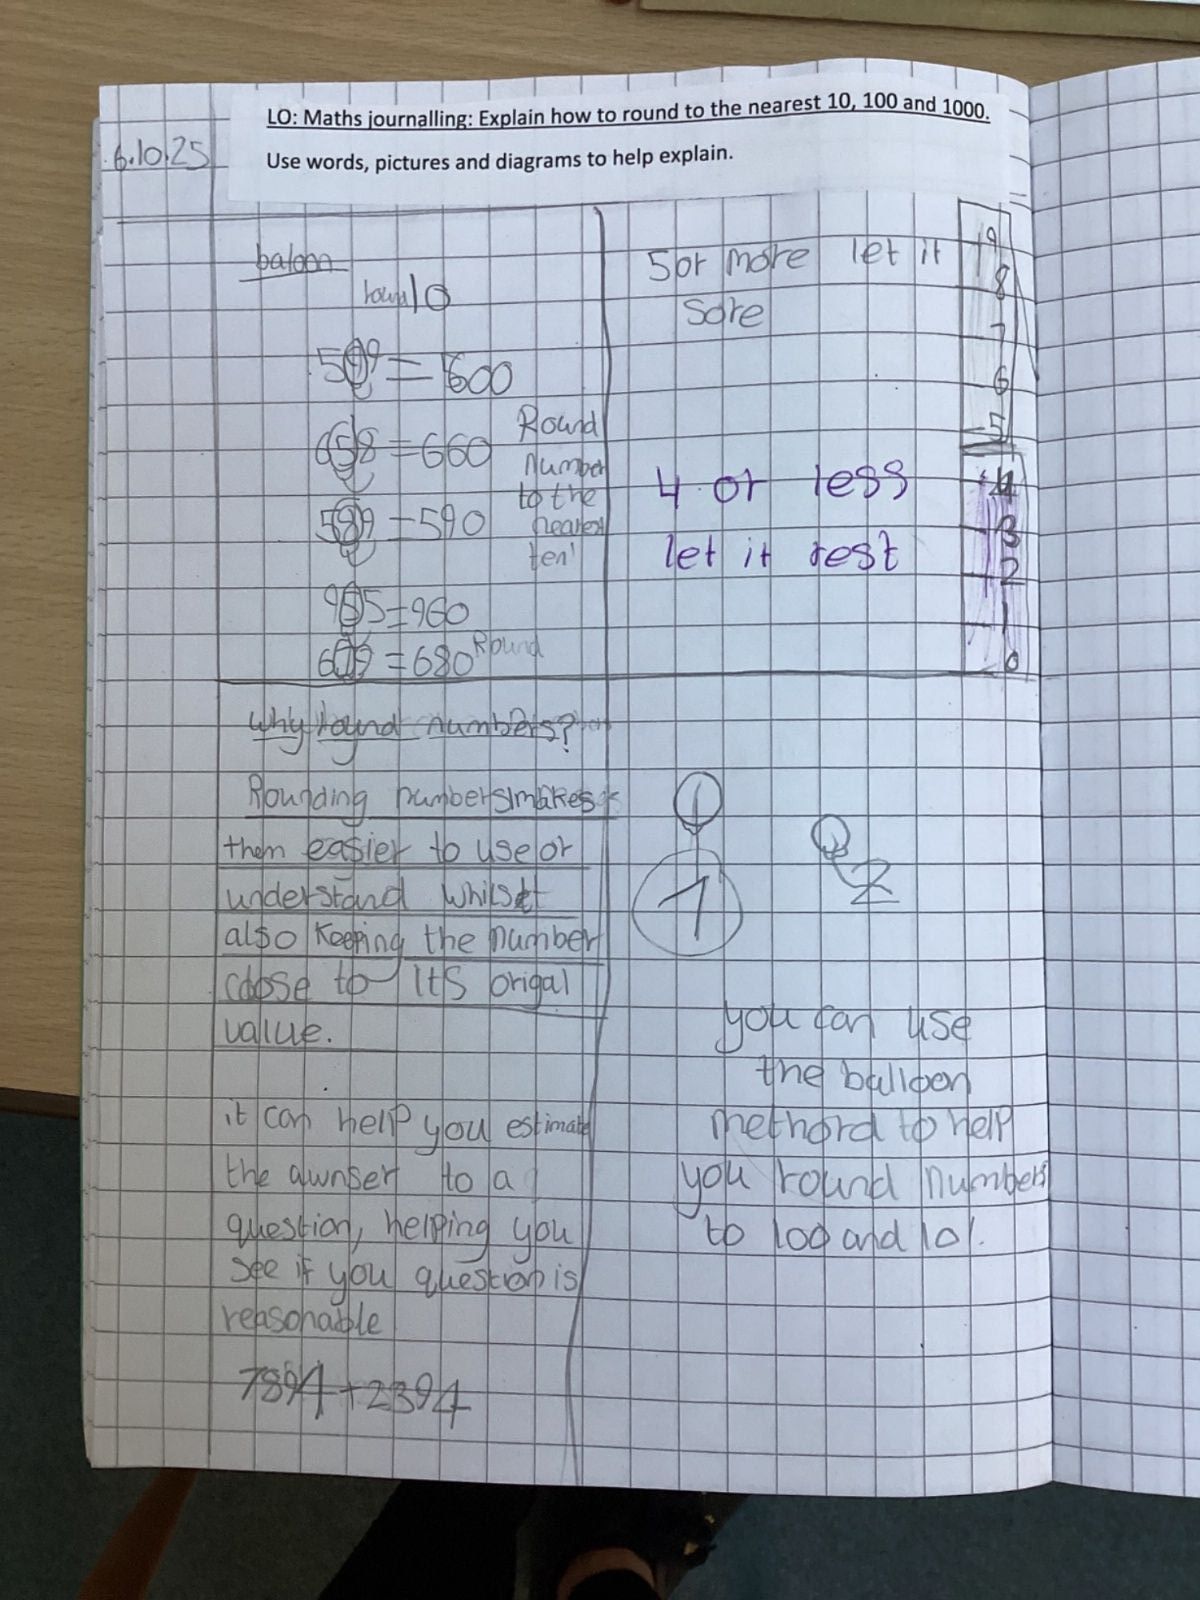 LO: Maths journalling: Explain how to round to the nearest 10, 100 and 1000.
Use words, pictures and diagrams to help explain.
6.10.25
baloon
10
599 = 600
658 = 660
589 = 590
965 = 960
609 = 680 Round
Round
number
to the
nearest
ten
5 or more let it
Sore
4 or less
let it rest
9
8
7
6
5
4
3
2
1
0
why round numbers?
Rounding numbers makes
them easier to use or
understand whilset
also keeping the number
coose to its origal
value.
it can help you estimate
the awnser to a
question, helping you
see if you question is
reasonable
7894 + 2394
1
1
2
you can use
the balloon
methord to help
you round numbers
to 100 and 10.